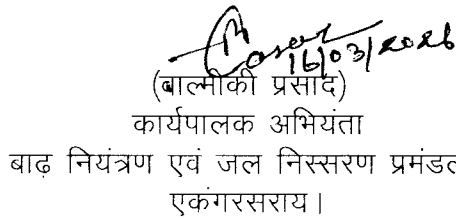 16/03/2026
(बाल्मीकी प्रसाद)
कार्यपालक अभियंता
बाढ़ नियंत्रण एवं जल निस्सरण प्रमंडल
एकंगरसराय।